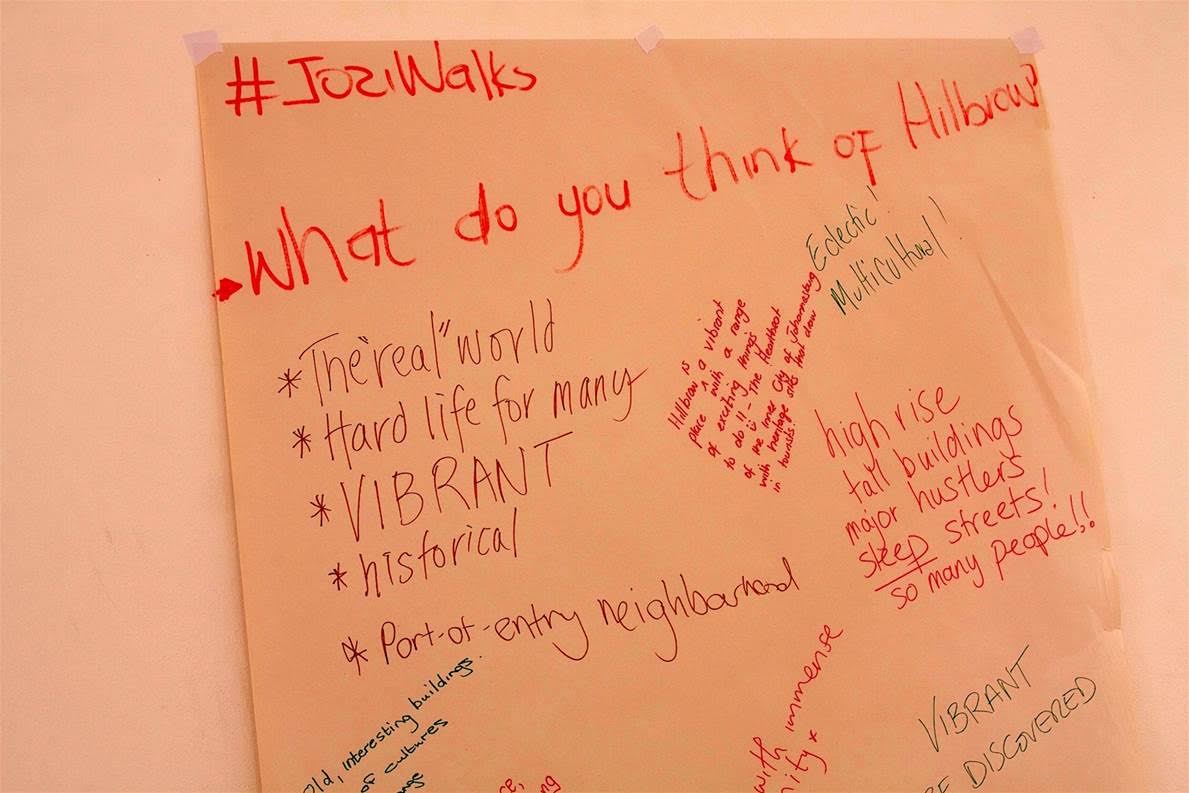 #JoziWalks
What do you think of Hillbrow?
Eclectic!
Multicultural!
* The "real" world
* Hard life for many
* VIBRANT
* historical
* Port-of-entry neighbourhood
Hillbrow is a vibrant
place with a range
of exciting things
to do!! - The Heartbeat
of the Inner City of Johannesburg
with heritage sites that draw
in tourists!
high rise
tall buildings
major hustlers
steep streets!
so many people!!
Old, interesting buildings.
of cultures
with immense
VIBRANT
DISCOVERED